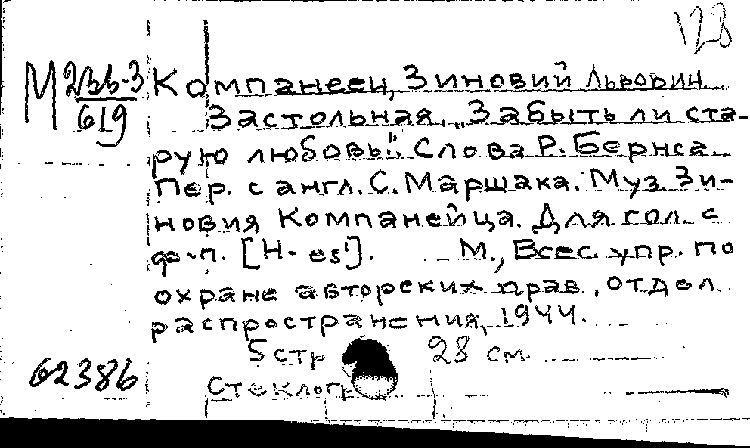 123
М 2Вб-3
619
Компанеец, Зиновий Львович.
Застольная. „Забыть ли ста-
рую любовь". Слова Р. Бернса.
Пер. с англ. С. Маршака. Муз. Зи-
новия Компанейца. Для гол. с
ф-п. [H-es']. М., Всес. упр. по
охране авторских прав, отдел
распространения, 1944.
5 стр 28 см
62386
Стеклогр